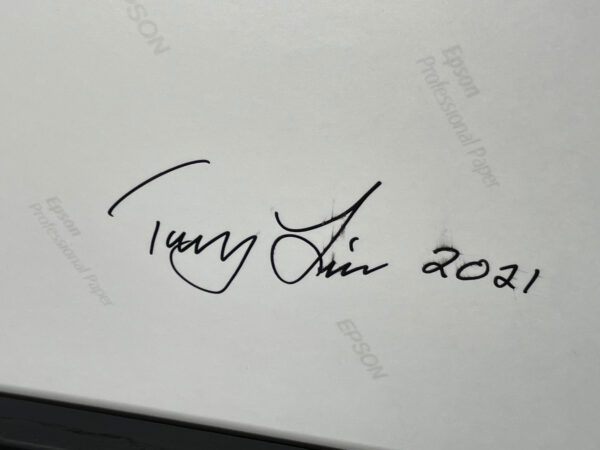 EPSON
Epson
Professional Paper
Epson
Professional Paper
Tony Lin 2021
EPSON